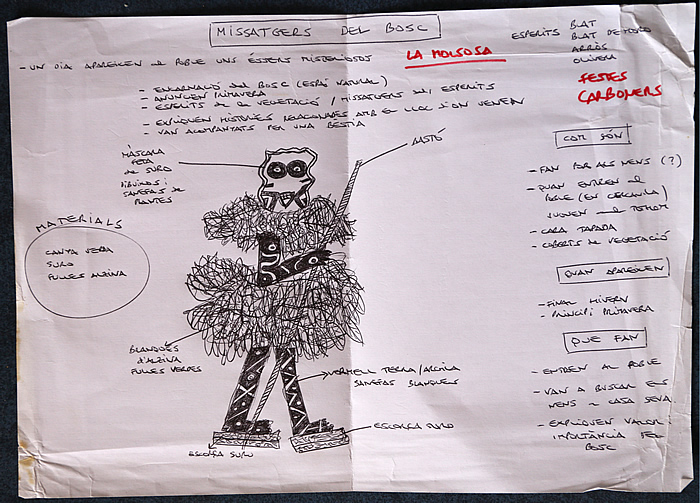 MISSATGERS DEL BOSC
- UN DIA APAREIXEN AL POBLE UNS ÉSSERS MISTERIOSOS
LA MOLSOSA
ESPERITS BLAT
BLAT DE MORO
ARRÒS
OLIVERA
FESTES
CARBONERS
- ENCARNACIÓ DEL BOSC (ESPAI NATURAL)
- ANUNCIEN PRIMAVERA
- ESPERITS DE LA VEGETACIÓ / MISSATGERS DELS ESPERITS
- EXPLIQUEN HISTÒRIES RELACIONADES AMB EL LLOC D'ON VENEN
- VAN ACOMPANYATS PER UNA BÈSTIA
MÀSCARA
FETA
DE SURO
DIBUIXOS I
SANEFES DE
PLANTES
BASTÓ
MATERIALS
CANYA VERA
SURO
FULLES ALZINA
BRANQUES
D'ALZINA
FULLES VERDES
VERMELL TERRA/ARGILA
SANEFES BLANQUES
ESCORÇA SURO
ESCORÇA SURO
COM SÓN
- FAN POR ALS NENS (?)
- QUAN ENTREN AL
POBLE (EN CERCAVILA)
SONEN AL
- CARA TAPADA
- COBERTS DE VEGETACIÓ
QUAN APAREIXEN
- FINAL HIVERN
- PRINCIPI PRIMAVERA
QUE FAN
- ENTREN AL POBLE
- VAN A BUSCAR ELS
NENS A CASA SEVA
- EXPLIQUEN VALOR I
IMPORTÀNCIA DEL
BOSC